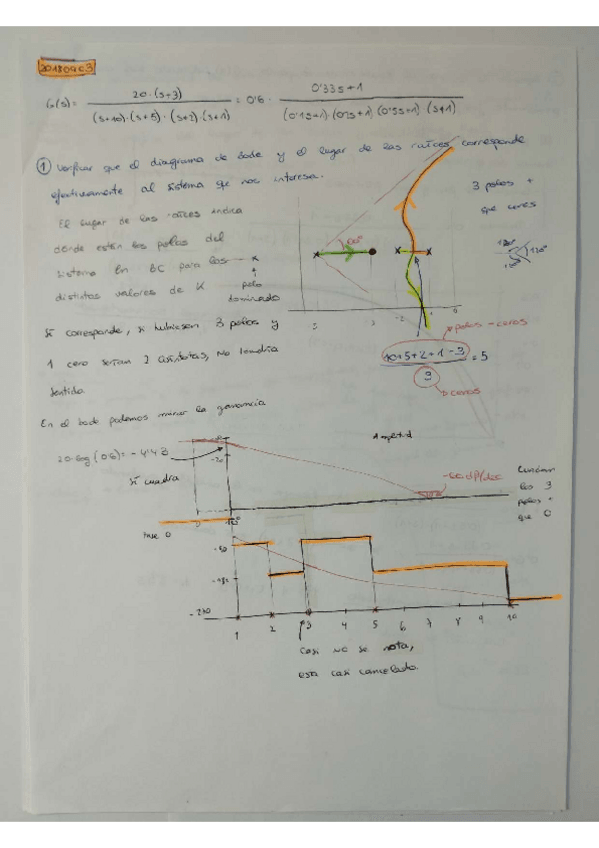 201809C3
G(s) = 20·(s+3) / (s+10)·(s+5)·(s+2)·(s+1) = 0'6 · 0'33s+1 / (0'1s+1)·(0's+1)·(0'5s+1)·(s+1)
1 Verificar que el diagrama de bode y el lugar de las raíces corresponde
efectivamente al sistema que nos interesa.
El lugar de las raíces indica
donde están los polos del
sistema en BC para los
distintos valores de K
polo
dominado
3 polos +
que ceros
60°
120°
120°
120°
Si corresponde, si hubiesen 3 polos y
1 cero serían 2 asíntotas, no tendría
sentido
5
3
-2
-1
0
polos - ceros
10+5+2+1-3 = 5
3
ceros
En el bode podemos mirar la ganancia
20·log(0'6) = -4'43
Si cuadra
-20
Amplitud
-60 dB/dec
los 3
polos +
que 0
Fase 0
-90
-180
-270
1 2 3 4 5 6 7 8 9 10
Casi no se nota,
está casi cancelado.